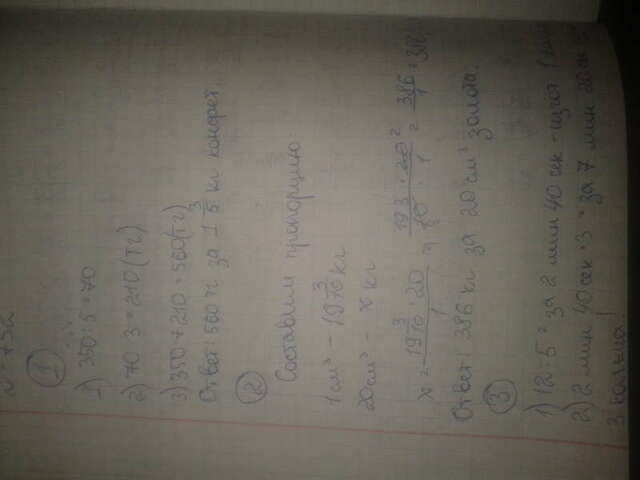 ①
1) 350 : 5 = 70
2) 70 · 3 = 210 (тг)
3) 350 + 210 = 560 (тг)
Ответ: 560 тг за 1 3/5 кг конфет.
②
Составим пропорцию:
1 см³ - 19 3/10 кг
20 см³ - x кг
x = 19 3/10 · 20 / 1 = 193 · 20 2 / 10 · 1 = 386 / 1 =
Ответ: 386 кг за 20 см³ золота.
③
1) 12 : 5 = за 2 мин 40 сек -
2) 2 мин 40 сек · 3 = за 7 мин
3 кольца!